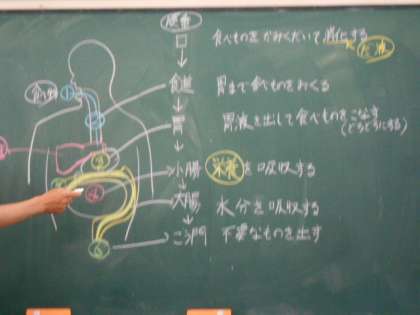 口 食べものをかみくだいて消化する
だ液
食道 胃まで食べものをおくる
胃 胃液を出して食べものをこなす
(どろどろにする)
小腸 栄養を吸収する
大腸 水分を吸収する
こう門 不要なものを出す
①
②
③
⑥